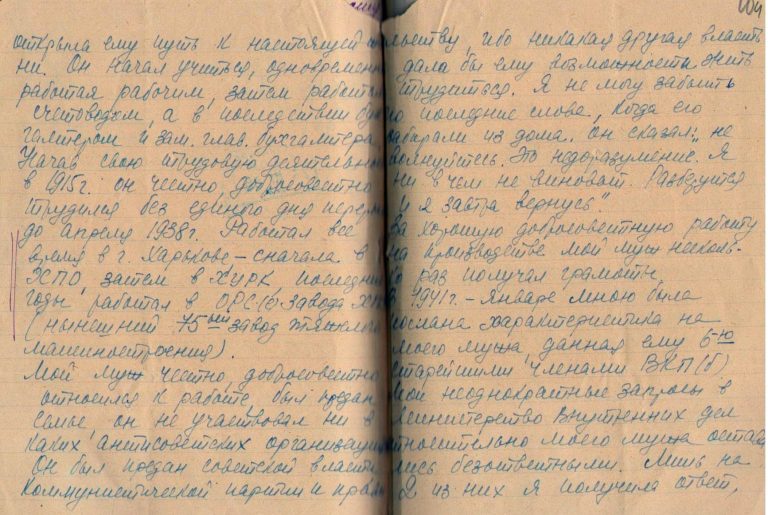 104
открыла ему путь к настоящей
ни. Он начал учиться, одновремен
работая рабочим, затем работал
счетоводом, а в последствии бух
галтером и зам. глав. бухгалтера.
Начав свою трудовую деятельно
в 1915 г. он честно, добросовестно
трудился без единого дня перер
до апреля 1938 г. Работал все
время в г. Харькове – сначала в
ХСПО, затем в ХУРК, последни
годы работал в ОРСе завода
(нынешний 75ый завод тяжелого
машиностроения).
Мой муж честно, добросовестно
относился к работе, был предан
семье, он не участвовал ни в
каких антисоветских организаци
Он был предан советской власти
коммунистической партии и прави
льству, ибо никакая другая власть
дала бы ему возможность жить
трудиться. Я не могу забыть
последние слова, когда его
забирали из дома. Он сказал: „не
волнуйтесь. Это недоразумение. Я
ни в чем не виноват. Разберутся
и я завтра вернусь".
За хорошую добросовестную работу
на производстве мой муж несколь-
ко раз получал грамоты.
В 1941 г. – Январе мною была
послана характеристика на
моего мужа, данная ему 6-ю
старейшими членами ВКП(б)
Мои неоднократные запросы в
Министерство Внутренних дел
относительно моего мужа оста
лись безответными. Лишь на
2 из них я получила ответ,